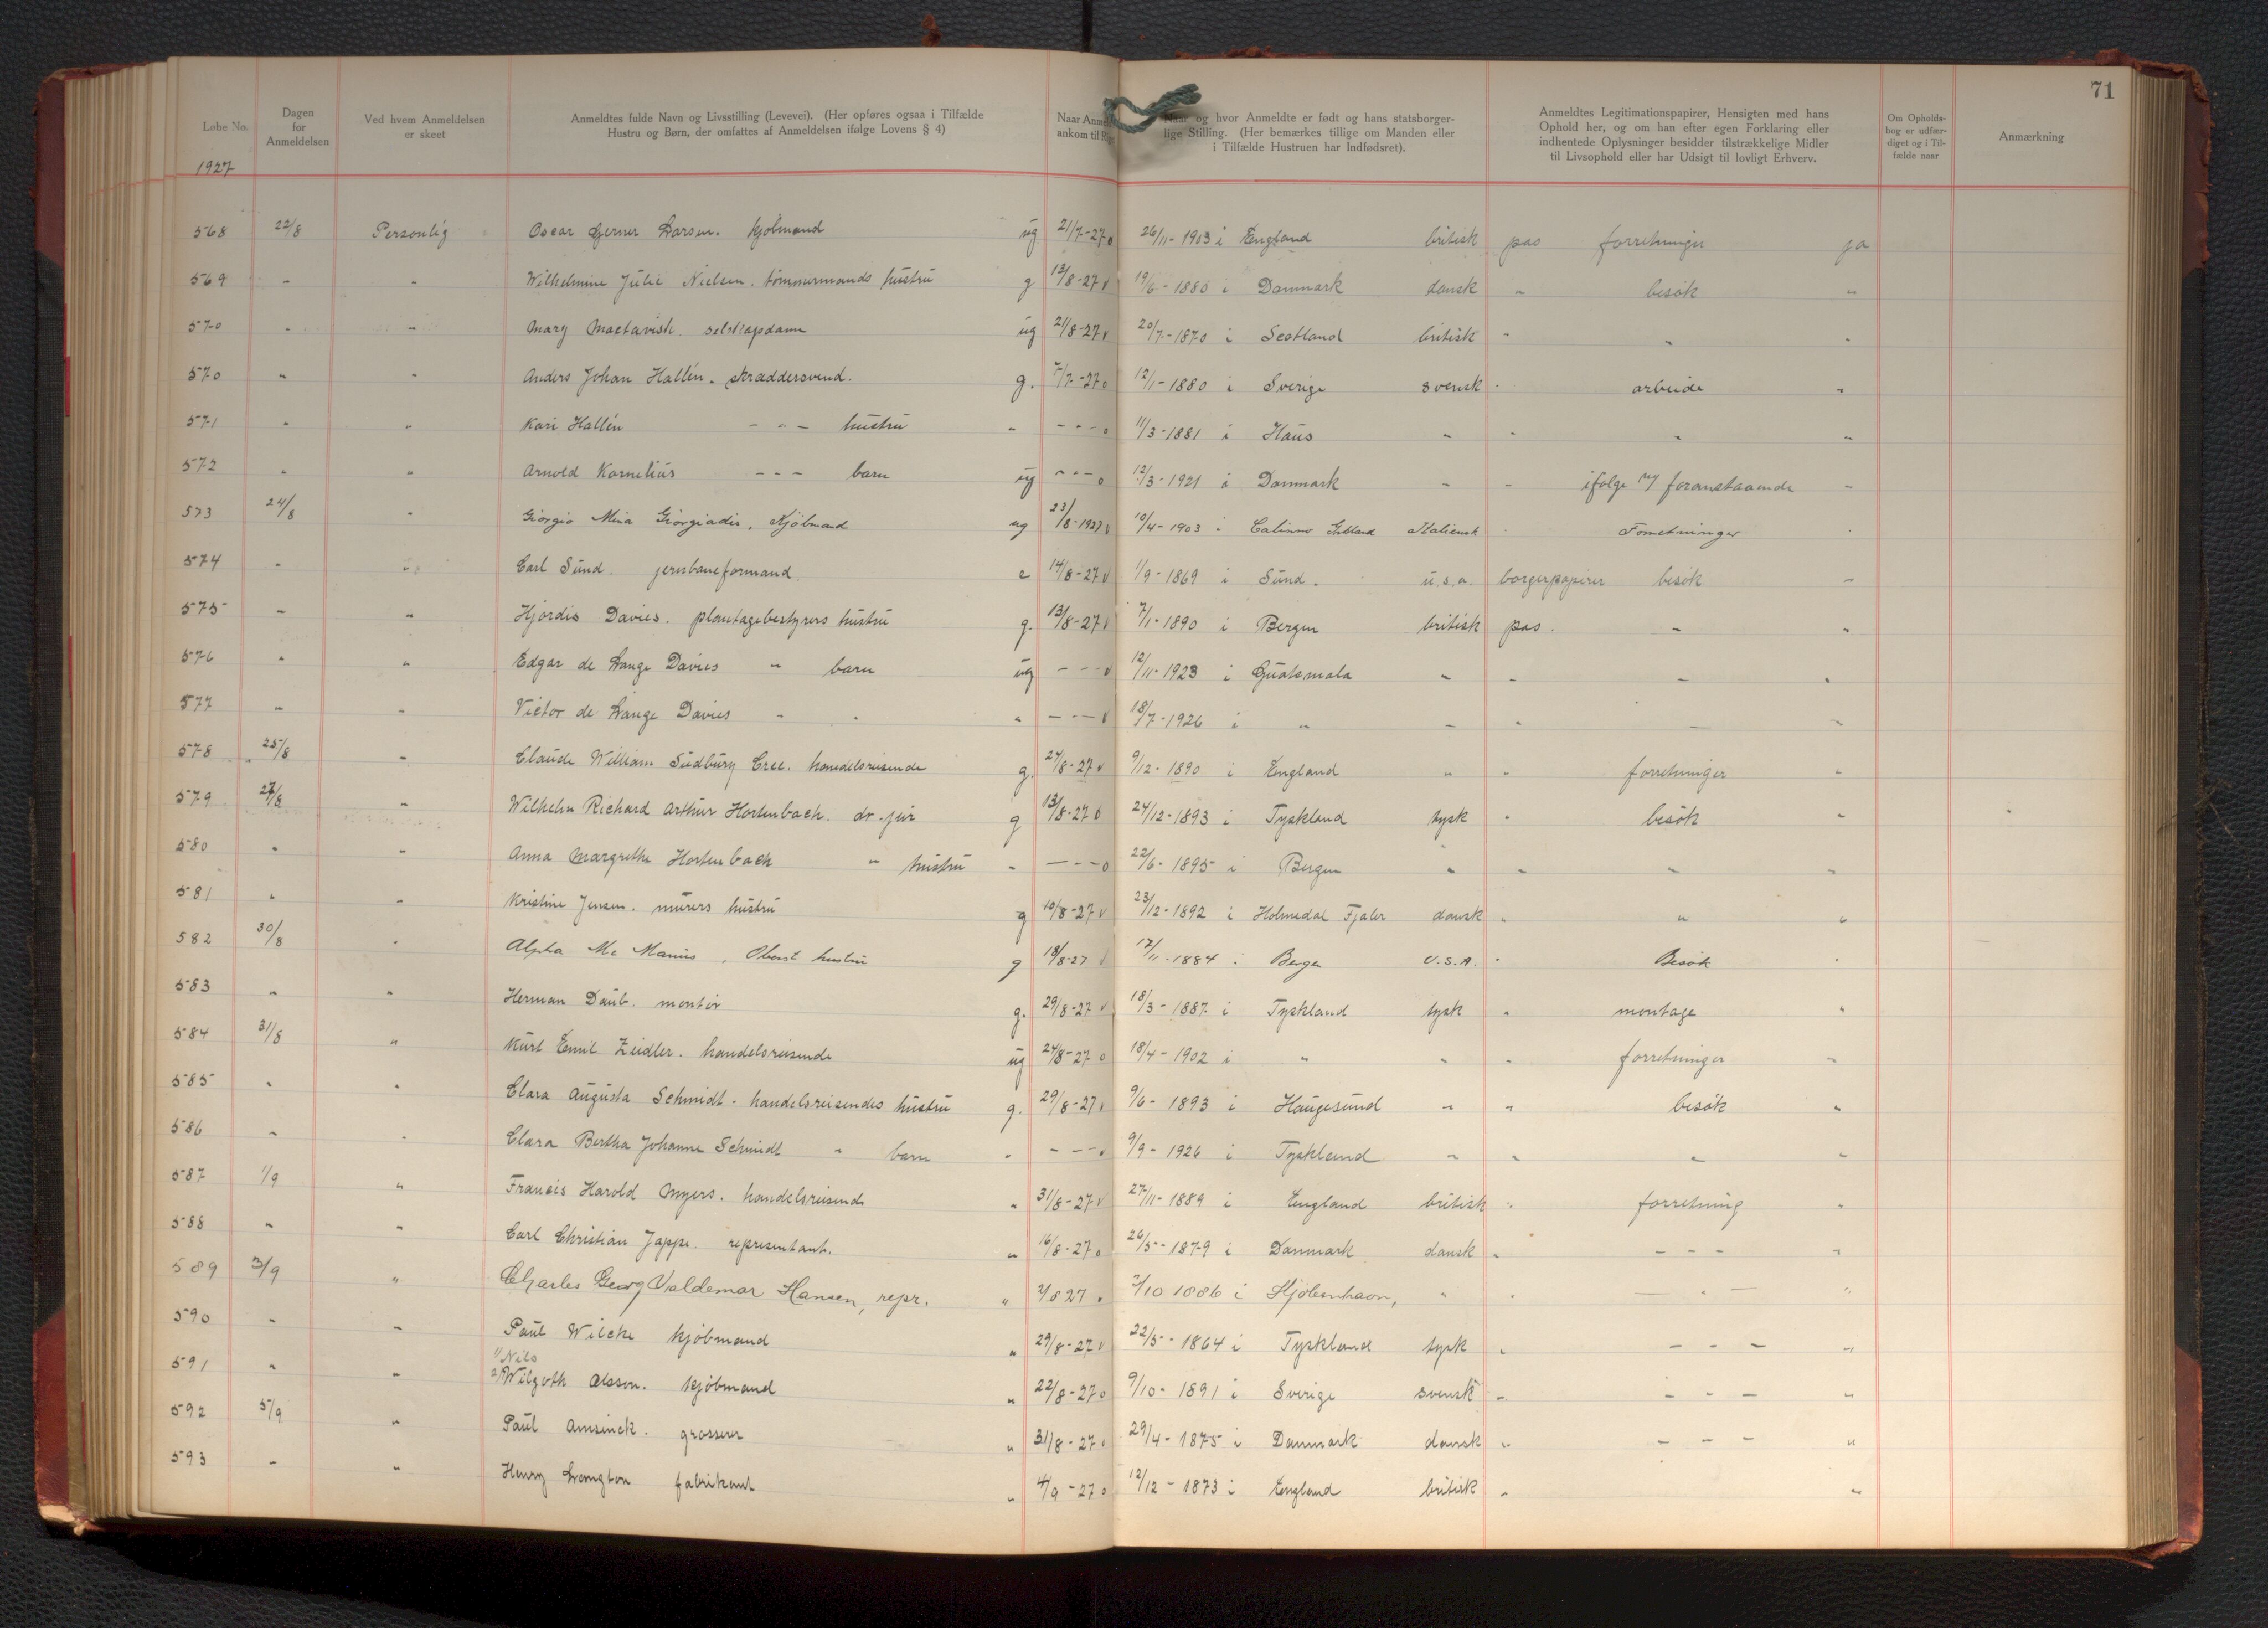 71
Løbe No. Dagen for Anmeldelsen Ved hvem Anmeldelsen er skeet Anmeldtes fulde Navn og Livsstilling (Levevei). (Her opføres ogsaa i Tilfælde Hustru og Børn, der omfattes af Anmeldelsen ifølge Lovens § 4) Naar Anme ankom til Rig og hvor Anmeldte er født og hans statsborgerlige Stilling. (Her bemærkes tillige om Manden eller i Tilfælde Hustruen har Indfødsret). Anmeldtes Legitimationspapirer, Hensigten med hans Ophold her, og om han efter egen Forklaring eller indhentede Oplysninger besidder tilstrækkelige Midler til Livsophold eller har Udsigt til lovligt Erhverv. Om Opholdsbog er udfærdiget og i Tilfælde naar Anmærkning
1927
568 22/8 Personlig Oscar Gerner Larsen. kjøbmand ug 21/7-27 o 26/11-1903 i England britisk pas forretninger ja
569 " " Wilhelmine Julie Nielsen. tømmermands hustru g 13/8-27 v 19/6-1886 i Danmark dansk " besøk "
570 " " Mary Mactavish. selskapsdame ug 21/8-27 v 20/7-1870 i Scotland britisk " " "
570 " " Anders Johan Hallén. skræddersvend. g. 7/7-27 o 12/1-1880 i Sverige svensk " arbeide "
571 " " Kari Hallén - " - hustru " - - - o 11/3-1881 i Haus " " " "
572 " " Arnold Kornelius - - - barn ug - - - o 12/3-1921 i Danmark " " ifølge foranstaaende "
573 24/8 " Giorgio Mina Giorgiadis, Kjöbmand ug 23/8-1927 v 10/4-1903 i Calimno Italiensk " Forretninger "
574 " " Carl Sund. jernbaneformand. e 14/8-27 v 1/9-1869 i Sund. u.s.a. borgerpapirer besøk "
575 " " Hjørdis Davies. plantagebestyrers hustru g. 13/8-27 v 7/1-1890 i Bergen britisk pas. " "
576 " " Edgar de Lange Davies " barn ug - - - v 12/11-1923 i Guatemala " " " "
577 " " Victor de Lange Davies " " " - - - v 18/7-1926 i " " " — "
578 25/8 " Claude William Sudbury Cree. handelsreisende g. 24/8-27 v 9/12-1890 i England " " forretninger "
579 27/8 " Wilhelm Richard Arthur Hortenbach. dr. jur g 13/8-27 o 24/12-1893 i Tyskland tysk " besøk "
580 " " Anna Margrethe Hortenbach " hustru " - - - o 22/6-1895 i Bergen " " " "
581 " " Kristine Jensen. murers hustru g 10/8-27 v 23/12-1892 i Holmedal Fjaler dansk " " "
582 30/8 " Alpha Mc Manus, Oberst hustru g 18/8-27 v 17/11-1884 i Bergen U.S.A. " Besøk "
583 " " Herman Daub. montør g. 29/8-27 v 18/3-1887 i Tyskland tysk " montage "
584 31/8 " Kurt Emil Zeidler. handelsreisende ug 24/8-27 o 18/4-1902 i " " " forretninger "
585 " " Clara Augusta Schmidt. handelsreisendes hustru g. 29/8-27 v 9/6-1893 i Haugesund " " besøk "
586 " " Clara Bertha Johanne Schmidt " barn " - - - v 9/9-1926 i Tyskland " " " "
587 1/9 " Francis Harold Myers. handelsreisende " 31/8-27 v 27/11-1889 i England britisk " forretning "
588 " " Carl Christian Jappe. representant. " 16/8-27 o 26/5-1879 i Danmark dansk " - - - "
589 3/9 " Charles Georg Valdemar Hansen, repr. " 2/8 27 2/10 1886 i Kjöbenhavn, " " — " — "
590 " " Paul Wilcke kjøbmand " 29/8-27 v 22/5-1864 i Tyskland tysk " - - - "
1) Nils
591 " " 2) Wilgoth Olsson. kjøbmand " 22/8-27 o 9/10-1891 i Sverige svensk " - - - "
592 5/9 " Paul Amsinck. grosserer " 31/8-27 29/4-1875 i Danmark dansk " - - - "
593 " " Henry Langton fabrikant " 4/9-27 o 12/12-1873 i England britisk " "